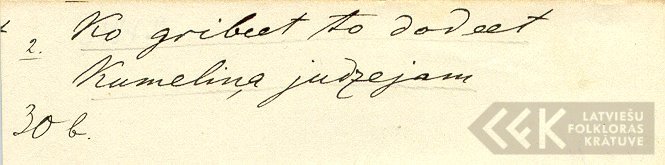 2. Ko gribeet to dodeet
Kumeliņa judzejam
30 b.
LFK LATVIEŠU
FOLKLORAS
KRĀTUVE